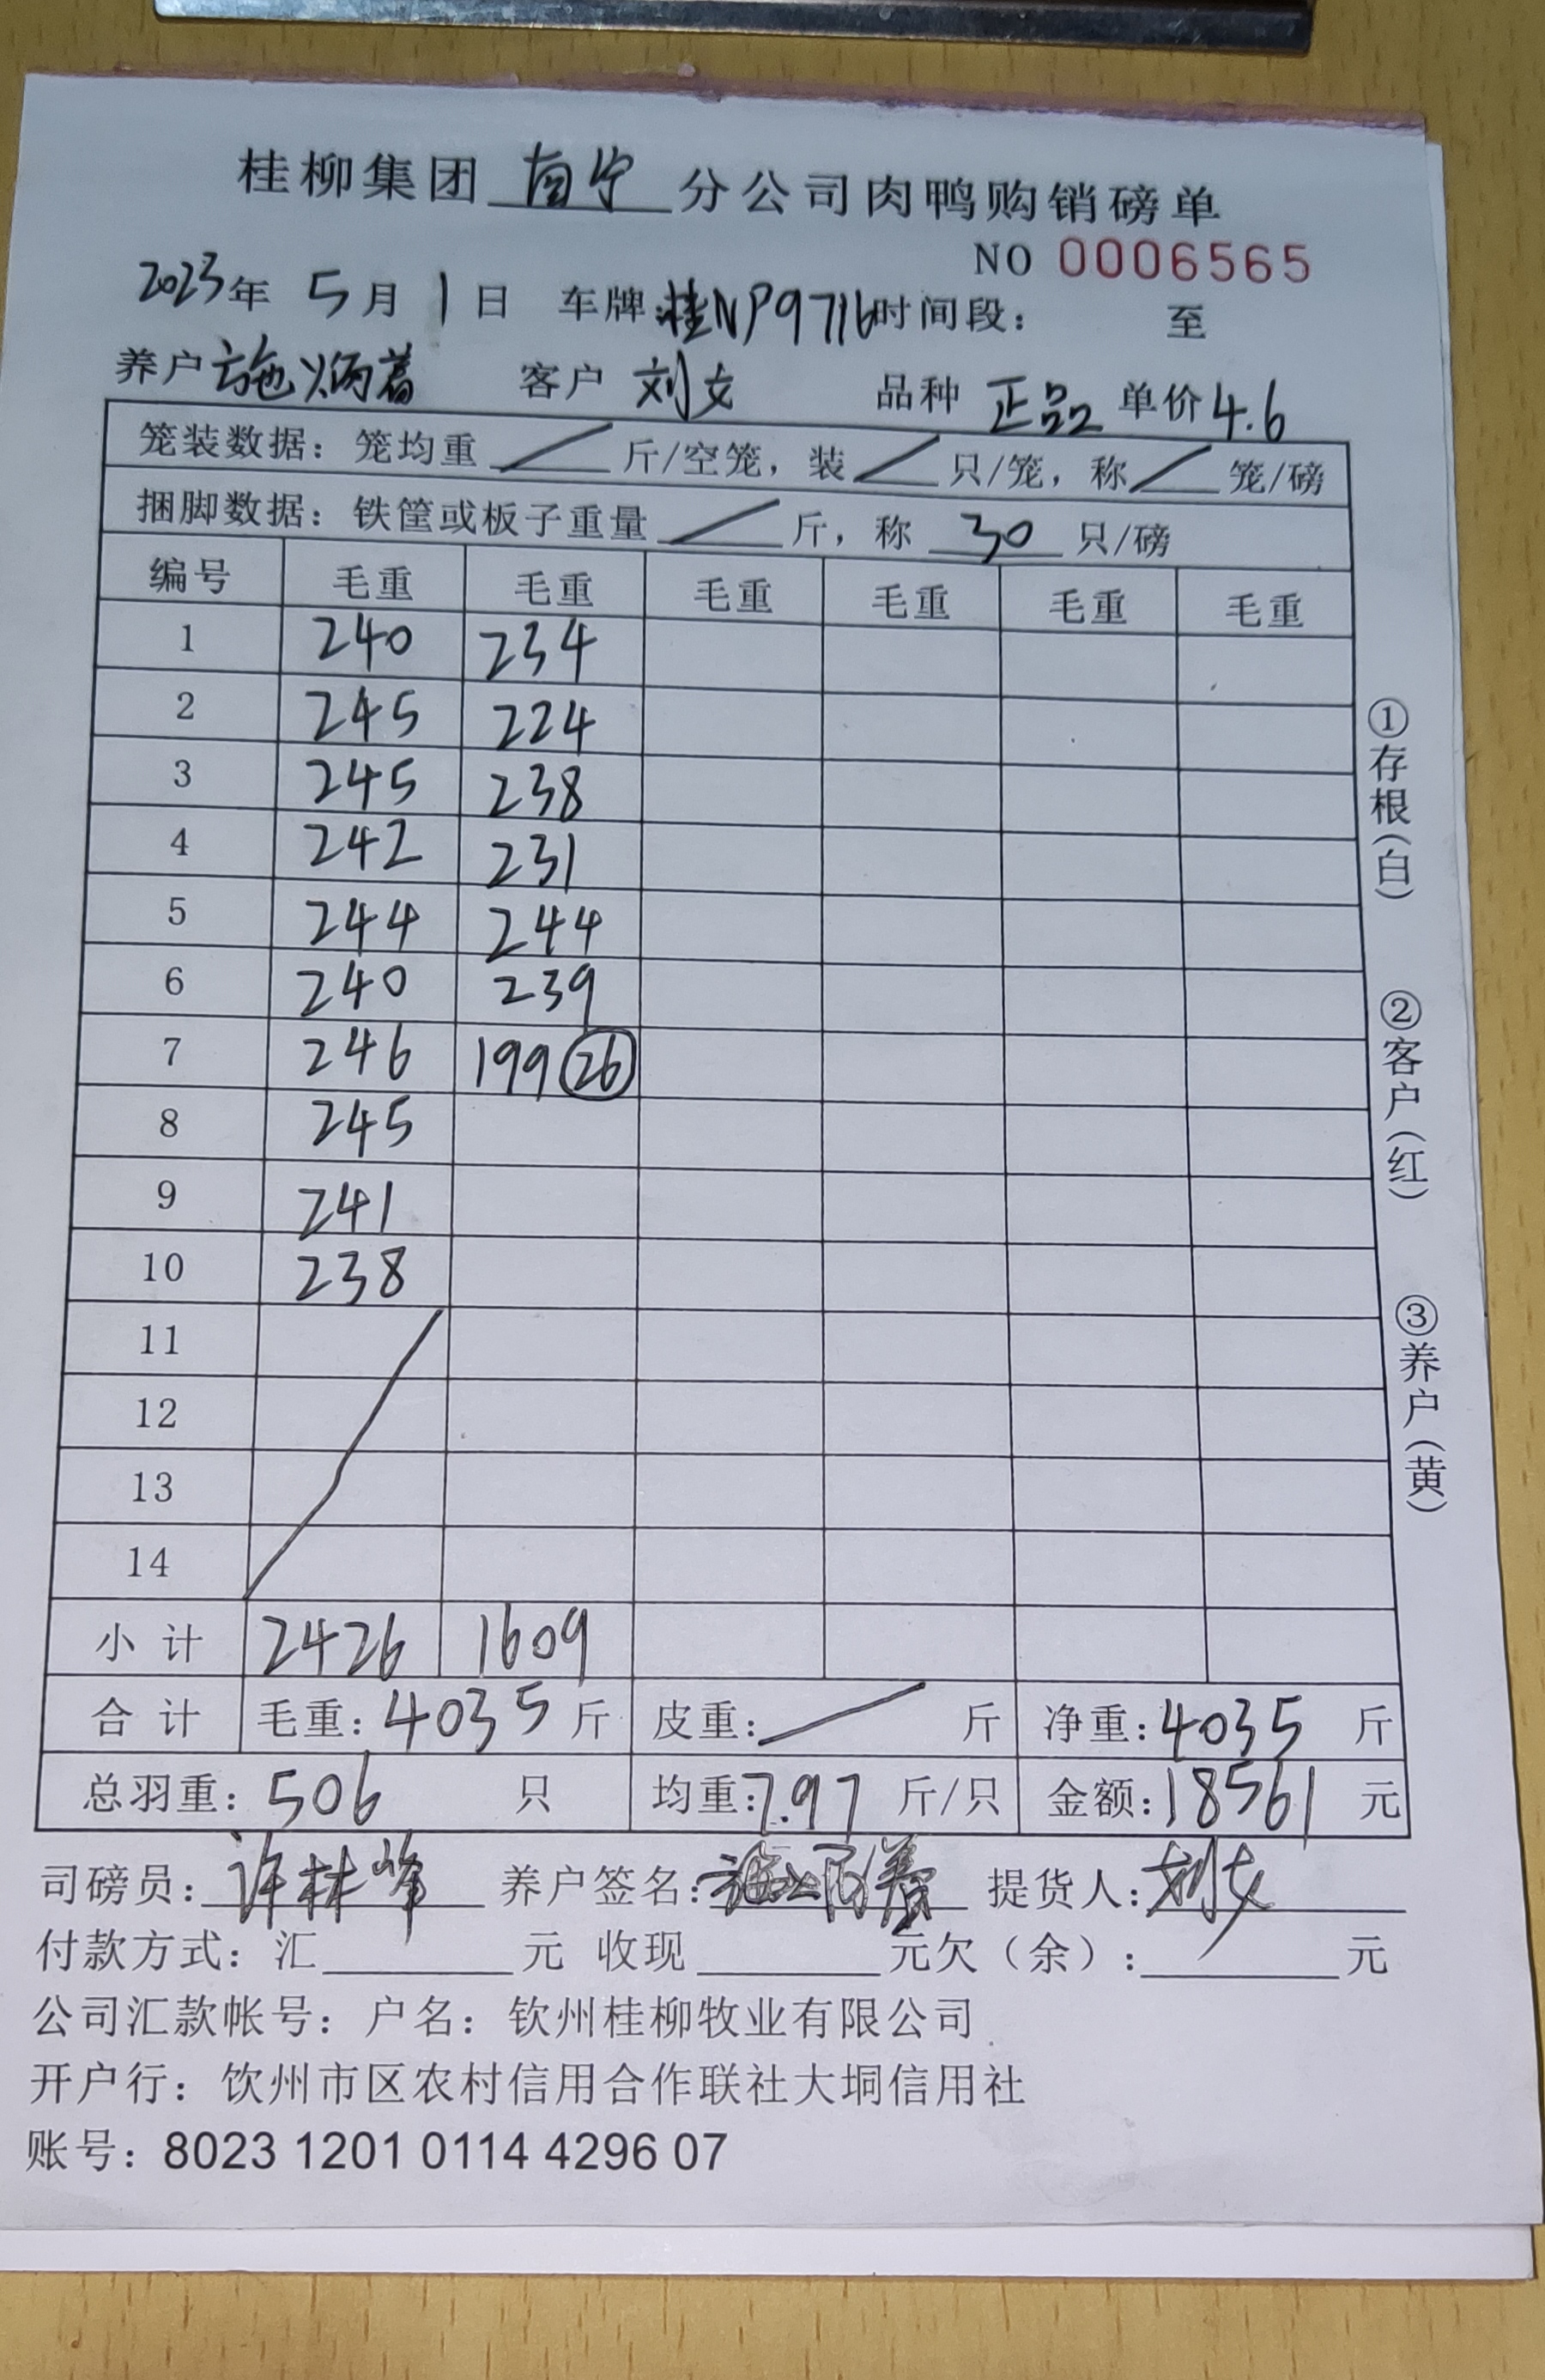 桂柳集团南宁分公司肉鸭购销磅单
NO 0006565
2023年 5月 1日 车牌:桂NP9716时间段: 至
养户 施炳着 客户 刘文 品种 正品 单价4.6
笼装数据:笼均重/斤/空笼,装/只/笼,称/笼/磅
捆脚数据:铁筐或板子重量/斤,称 30 只/磅
编号 毛重 毛重 毛重 毛重 毛重 毛重
1 240 234
2 245 224
3 245 238
4 242 231
5 244 244
6 240 239
7 246 199 26
8 245
9 241
10 238
11
12
13
14
小计 2426 1609
合计 毛重:4035斤 皮重:/斤 净重:4035 斤
总羽重:506 只 均重:7.97 斤/只 金额:18561 元
司磅员:许林峰 养户签名: 提货人:刘文
付款方式:汇______元 收现______元欠(余):______元
公司汇款帐号:户名:钦州桂柳牧业有限公司
开户行:饮州市区农村信用合作联社大垌信用社
账号:8023 1201 0114 4296 07
①存根(白)
②客户(红)
③养户(黄)